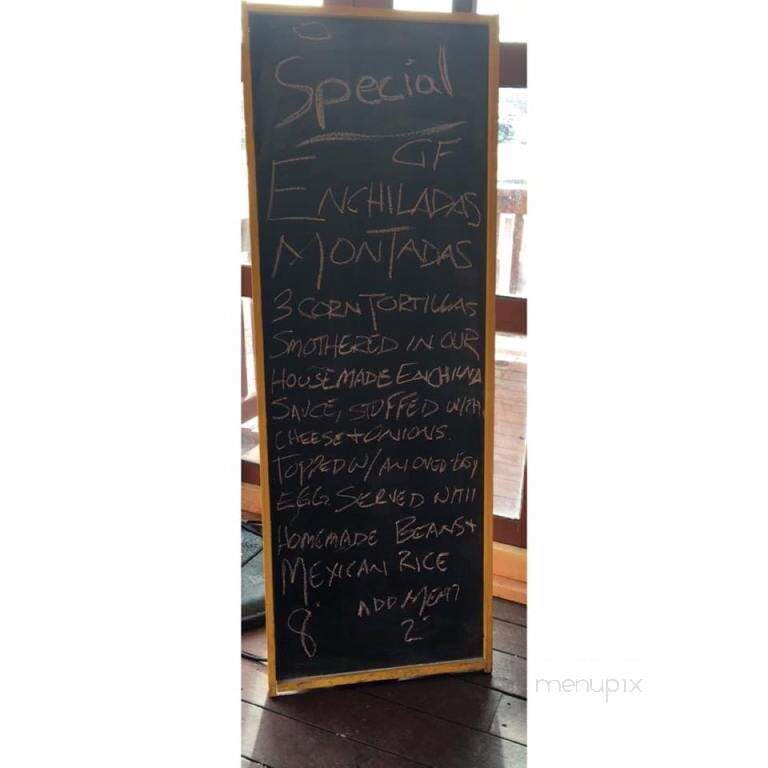 Special
GF
ENCHILADAS
MONTADAS
3 CORN TORTILLAS
SMOTHERED IN OUR
HOUSEMADE ENCHILADA
SAUCE, STUFFED WITH
CHEESE + ONIONS.
TOPPED W/ AN OVER-EASY
EGG. SERVED WITH
HOMEMADE BEANS +
MEXICAN RICE
8 ADD MEAT
2
menupix